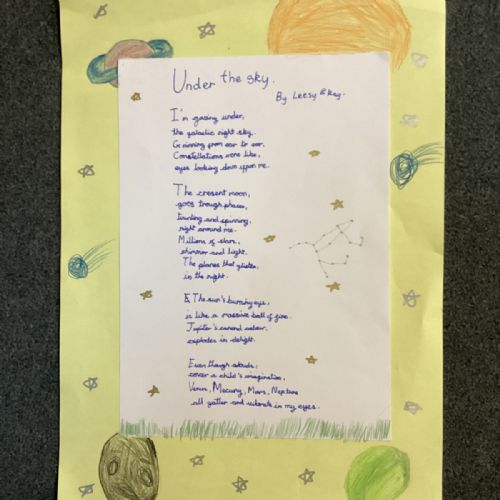 Under the sky.
By Leesy & Key.
I'm gazing under,
the galactic night sky.
Grinning from ear to ear,
Constellations were like,
eyes looking down uppon me.
The cresent moon,
goes trough phases,
twirling and spinning,
right around me.
Millions of stars,
shimmer and light.
The planes that glister,
in the night.
& The sun's burning eye,
is like a massive ball of fire.
Jupiter's colour,
explodes in delight.
Even though clouds,
cover a child's imagination,
Venus, Mecury, Mars, Neptune
all gather and in my eyes.